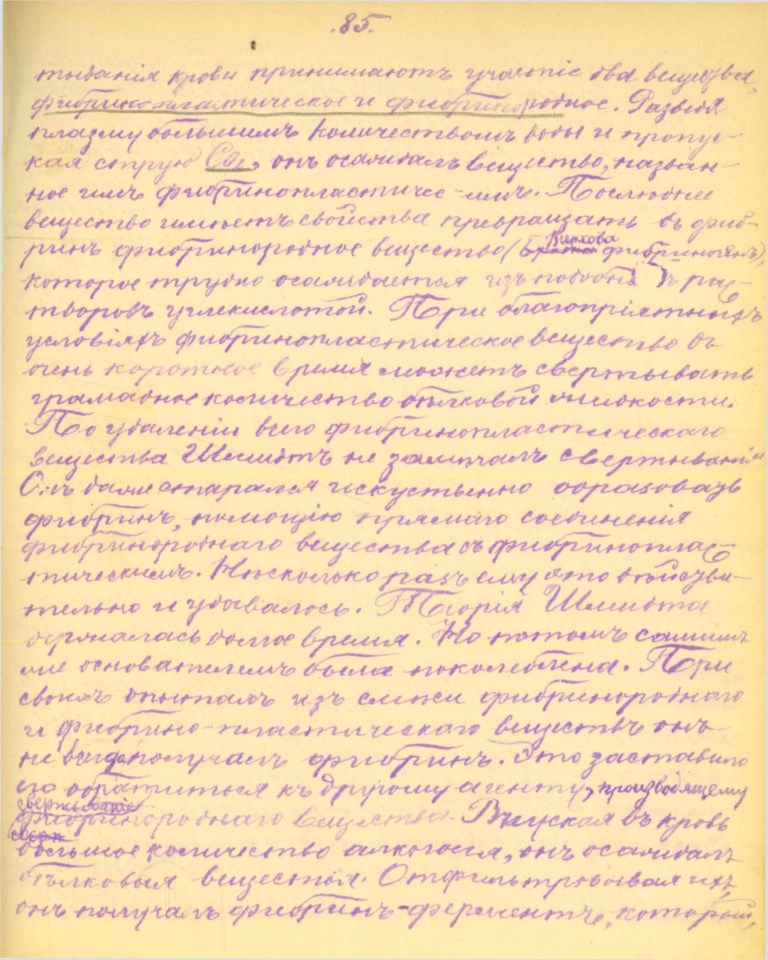 .85.
тыванія крови принимаютъ участіе два вещества,
фибрино-пластическое и фибринородное. Разводя
плазму большимъ количествомъ воды и пропус-
кая струю CO₂, онъ осаждалъ вещество, назван-
ное имъ фибринопластичес-имъ. Последнее
вещество имеетъ свойства превращать въ фиб-
ринъ фибринородное вещество ( Вирхова фибриногенъ),
которое трудно осаждается изъ подобн ъ рас-
творовъ углекислотой. При благопріятныхъ
условіяхъ фибринопластическое вещество въ
очень короткое время можетъ свертывать
грамадное количество бѣлковой жидкости.
По удаленіи всего фибринопластическаго
вещества Шмидтъ не замѣчалъ свертыванія
Онъ далѣе старался искуственно образовать
фибринъ, помощію прямаго соединенія
фибринороднаго вещества съ фибриноплас-
тическимъ. Нѣсколько разъ ему это дѣйстви-
тельно и удавалось. Теорія Шмидта
держалась долгое время. Но потомъ самимъ
же основателемъ была поколеблена. При
своихъ опытахъ изъ смѣси фибринороднаго
и фибрино-пластическаго веществъ онъ
не всегда получалъ фибринъ. Это заставило
его обратиться къ другому агенту, производящему
свертываніе
фибринороднаго вещества. Выпуская въ кровь
сверт
большое количество алкоголя, онъ осаждалъ
бѣлковыя вещества. Отфильтровывая ихъ,
онъ получалъ фибринъ-ферментъ, который,